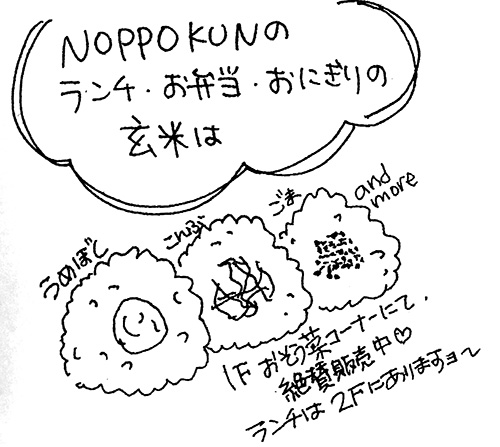 NOPPOKUNの
ランチ・お弁当・おにぎりの
玄米は
うめぼし
こんぶ
ごま
and
more
1F おそう菜コーナーにて、
絶賛販売中♡
ランチは2Fにありますョ～